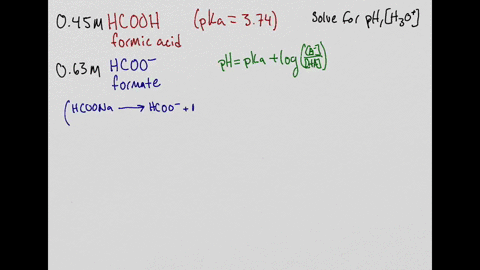 0.45M HCOOH (pKa = 3.74) Solve for pH, [H₃O⁺]
formic acid
0.63M HCOO⁻ pH = pKa + log([A⁻]/[HA])
formate
(HCOONa → HCOO⁻ +